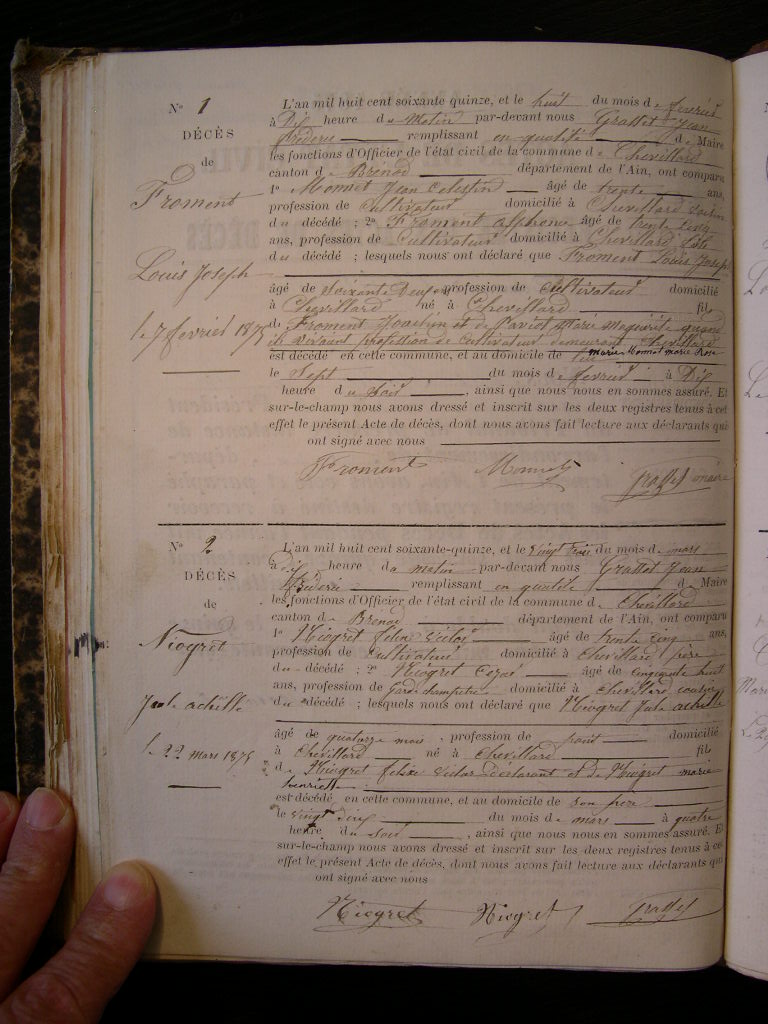 N° 1
DÉCÈS
de
Froment
Louis Joseph
le 7 fevrier 1875
L'an mil huit cent soixante quinze, et le huit du mois de fevrier
à Dix heure du Matin par-devant nous Grasset Jean
frederic remplissant en qualité de Maire
les fonctions d'Officier de l'état civil de la commune de Chevillard
canton de Brénod département de l'Ain, ont comparu
1° Monnet Jean Celestin âgé de trente ans,
profession de Cultivateur domicilié à Chevillard voisin
du décédé ; 2° Froment alphonse âgé de trente cinq
ans, profession de Cultivateur domicilié à Chevillard fils
du décédé ; lesquels nous ont déclaré que Froment Louis Joseph
âgé de soixante profession de Cultivateur domicilié
à Chevillard né à Chevillard fils
de Froment Joachim et de Marie
profession de Cultivateur demeurant Chevillard
est décédé en cette commune, et au domicile de Marie Monnet marie Rose
le Sept du mois de fevrier à Dix
heure du soir, ainsi que nous nous en sommes assuré. Et
sur-le-champ nous avons dressé et inscrit sur les deux registres tenus à cet
effet le présent Acte de décès, dont nous avons fait lecture aux déclarants qui
ont signé avec nous
Froment Monnet Grasset maire
N° 2
DÉCÈS
de
Niogret
Jule achille
le 22 mars 1875
L'an mil huit cent soixante-quinze, et le vingt trois du mois de mars
à dix heure du matin par-devant nous Grasset Jean
frederic remplissant en qualité de Maire
les fonctions d'Officier de l'état civil de la commune de Chevillard
canton de Brénod département de l'Ain, ont comparu
1° Niogret felix victor âgé de trente cinq ans,
profession de Cultivateur domicilié à Chevillard père
du décédé ; 2° Niogret Cézar âgé de cinquante huit
ans, profession de garde champetre domicilié à Chevillard
du décédé ; lesquels nous ont déclaré que Niogret Jule achille
âgé de quatorze mois, profession de domicilié
à Chevillard né à Chevillard fils
de Niogret felix victor déclarant et de Niogret marie
henriette
est décédé en cette commune, et au domicile de son père
le vingt deux du mois de mars à quatre
heure du soir, ainsi que nous nous en sommes assuré. Et
sur-le-champ nous avons dressé et inscrit sur les deux registres tenus à cet
effet le présent Acte de décès, dont nous avons fait lecture aux déclarants qui
ont signé avec nous
Niogret Niogret Grasset